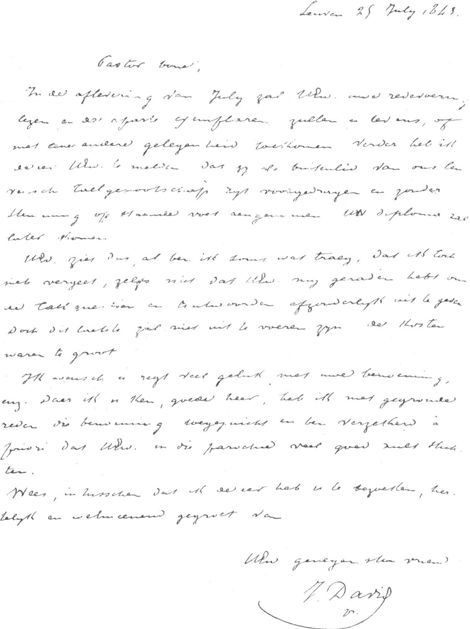 Leuven 25 July 1843.
Pastor bone,
In de aflevering van July zal UEw. uwe redevoering
lezen en de aparte exemplaren zullen u tevens, of
met eene andere gelegenheid toekomen Verder heb ik
de eer UEw. te melden dat gy als buitenlid van ons Leu
vensch Taelgenootschap zyt voorgedragen en zonder
stemming op staende voet aengenomen UW diploma zal
later komen.
UEw. ziet dus, al ben ik soms wat traeg, dat ik toch
niet vergeet, zelfs niet dat UEw. my geraden hebt om
de en Antwoorden afzonderlyk uit te geven
Doch dit laetste zal niet uit te voeren zyn de kosten
waren te groot
Ik wensch u regt veel geluk met uwe benoeming,
enz. daer ik u ken, goede heer, heb ik met gegronde
reden die benoeming en ben verzekerd à
priori dat UEw. in die parochie veel goed zult stich
ten.
Wees, intusschen dat ik de eer heb u te bezoeken, har
telyk en welmeenend gegroet van
UEw genegen vriend
J. David
pr.